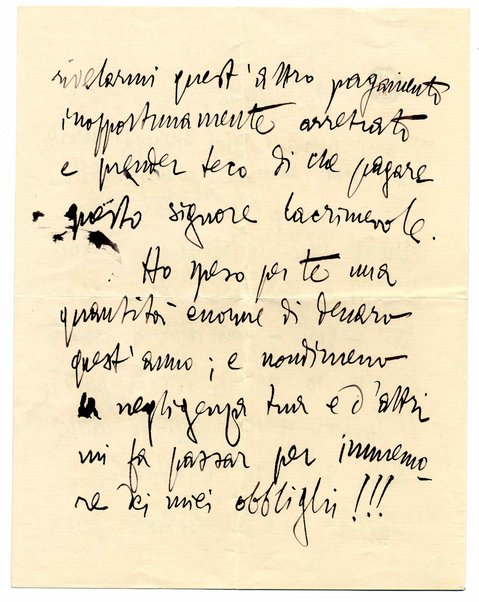 rivelarmi quest'altro pagamento
inopportunamente arretrato
e prender teco di che pagare
questo signore lacrimevole.
Ho speso per te una
quantità enorme di denaro
quest'anno; e nondimeno
la negligenza tua e d'altri
mi fa passar per immemo-
re dei miei obblighi!!!